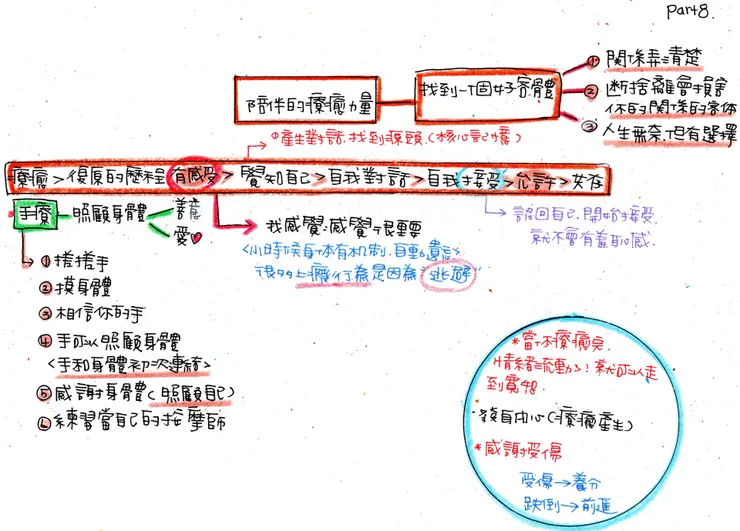 Part8.
陪伴的療癒力量
找到一個好客體
① 關係弄清楚
② 斷捨離會損害
你的關係的客体
③ 人生無奈,但有選擇
①產生對話.找到源頭.(核心記憶)
療癒>復原的歷程 有感受>覺知自己>自我對話>自我接受>允許>如在
手療 照顧身體
善意
愛
我感覺.感覺很重要
<小時候身体有机制.自動遺忘>
很多上癮行為是因為"逃避"
認回自己.開始接受.
就不會有羞恥感.
①搓搓手
②摸身體
③相信你的手
④手可以照顧身體
<手和身體初次連結>
⑤感謝身體(照顧自己)
⑥練習當自己的按摩師
*當下療癒員
情緒流動了!就可以走
到實相.
·發自內心(療癒產生)
*感謝受傷
受傷→養分
跌倒→前進